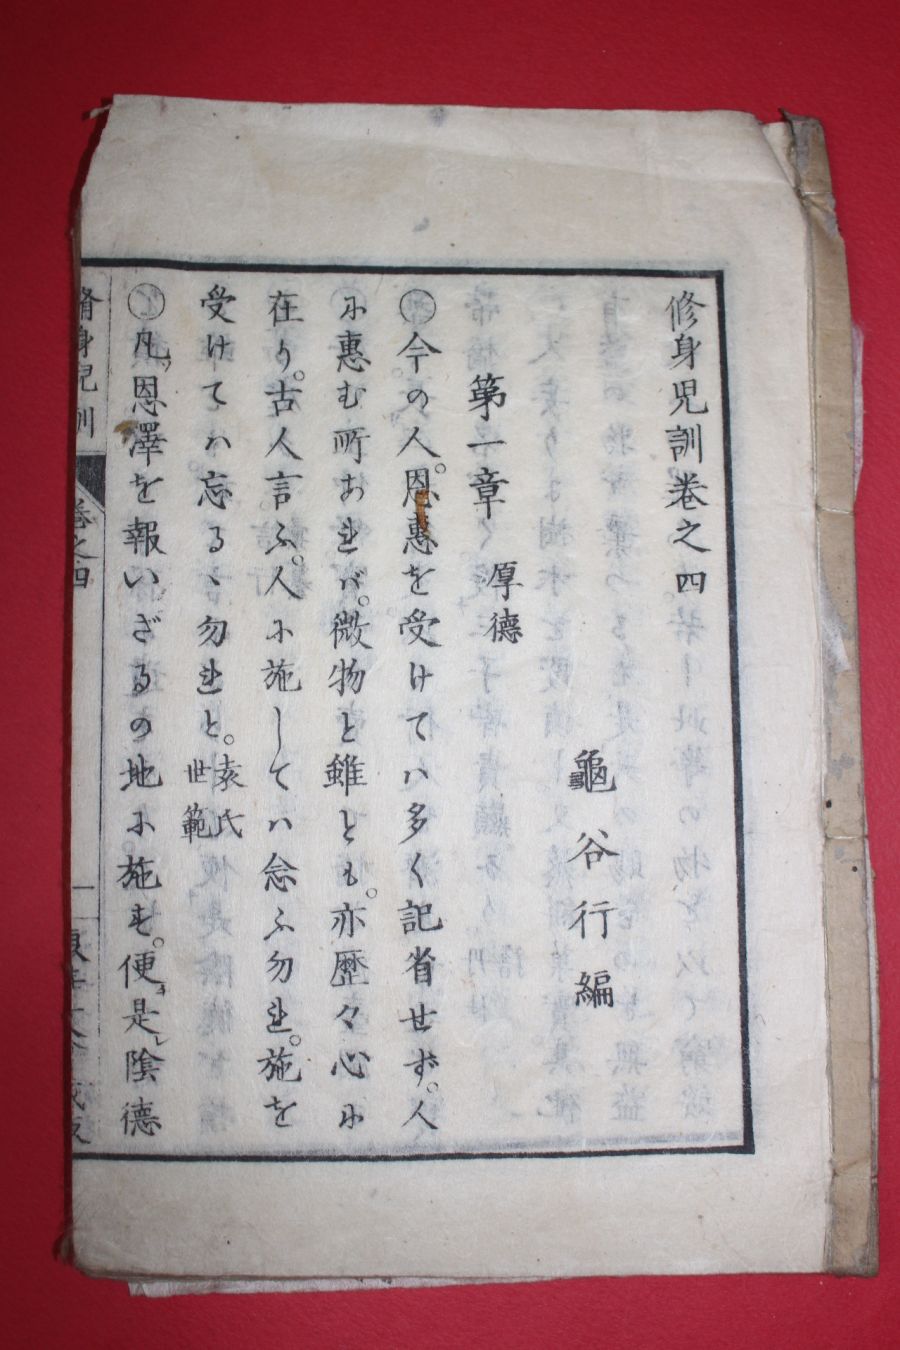 修身児訓巻之四
龜谷行編
第一章 厚德
今の人。恩惠を受けてハ多く記省せず。人
に惠む所あれバ。微物と雖とも。亦歷々心に
在り。古人言ふ。人に施してハ念ふ勿れ。施を
受けてハ忘るヽ勿れと。袁氏世範
凡恩澤を報いざるの地に施す。便是陰德
脩身児訓 巻之四 一